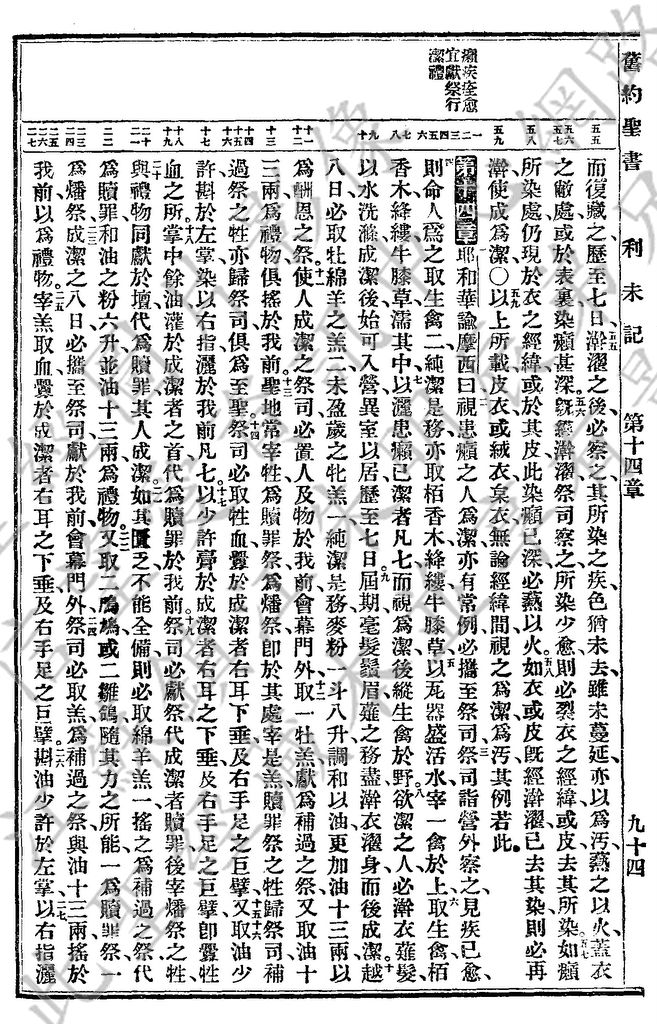 舊約聖書 利未記 第十四章 九十四
癩疾痊愈
宜獻祭行
潔禮
五五 五六 五七 五八 五九
一二三 四 五六 七八 九十
十一 十二 十三 十四 十五 十六 十七 十八 十九 二十
二一 二二 二三 二四 二五 二六 二七
而復藏之歷至七日澣濯之後必察之其所染之疾色猶未去雖未蔓延亦以為汚爇之以火蓋衣
之敝處或於表裏染癩甚深旣經澣濯祭司察之所染少愈則必裂衣之經緯或皮去其所染如癩
所染處仍現於衣之經緯或於其皮此染癩已深必爇以火如衣或皮旣經澣濯已去其染則必再
澣使成為潔○以上所載皮衣或絨衣枲衣無論經緯間視之為潔為汚其例若此
第十四章 耶和華諭摩西曰視患癩之人為潔亦有常例必攜至祭司祭司詣營外察之見疾已愈
則命人為之取生禽二純潔是務亦取栢香木絳縷牛膝草以瓦器盛活水宰一禽於上取生禽栢
香木絳縷牛膝草濡其中以灑患癩已潔者凡七而視為潔後縱生禽於野欲潔之人必澣衣薙髮
以水洗滌成潔後始可入營異室以居歷至七日屆期毫髮鬚眉薙之務盡澣衣濯身而後成潔越
八日必取牡綿羊之羔二未盈歲之牝羔一純潔是務麥粉一斗八升調和以油更加油十三兩以
為酬恩之祭使人成潔之祭司必置人及物於我前會幕門外取一牡羔獻為補過之祭又取油十
三兩為禮物俱搖於我前聖地常宰牲為贖罪祭為燔祭卽於其處宰是羔贖罪祭之牲歸祭司補
過祭之牲亦歸祭司俱為至聖祭司必取牲血釁於成潔者右耳下垂及右手足之巨擘又取油少
許斟於左掌染以右指灑於我前凡七以少許膏於成潔者右耳之下垂及右手足之巨擘卽釁牲
血之所掌中餘油灌於成潔者之首代為贖罪於我前祭司必獻祭代成潔者贖罪後宰燔祭之牲
與禮物同獻於壇代為贖罪其人成潔如其匱乏不能全備則必取綿羊羔一搖之為補過之祭代
為贖罪和油之粉六升並油十三兩為禮物又取二鳲鳩或二雛鴿隨其力之所能一為贖罪祭一
為燔祭成潔之八日必攜至祭司獻於我前會幕門外祭司必取羔為補過之祭與油十三兩搖於
我前以為禮物宰羔取血釁於成潔者右耳之下垂及右手足之巨擘斟油少許於左掌以右指灑